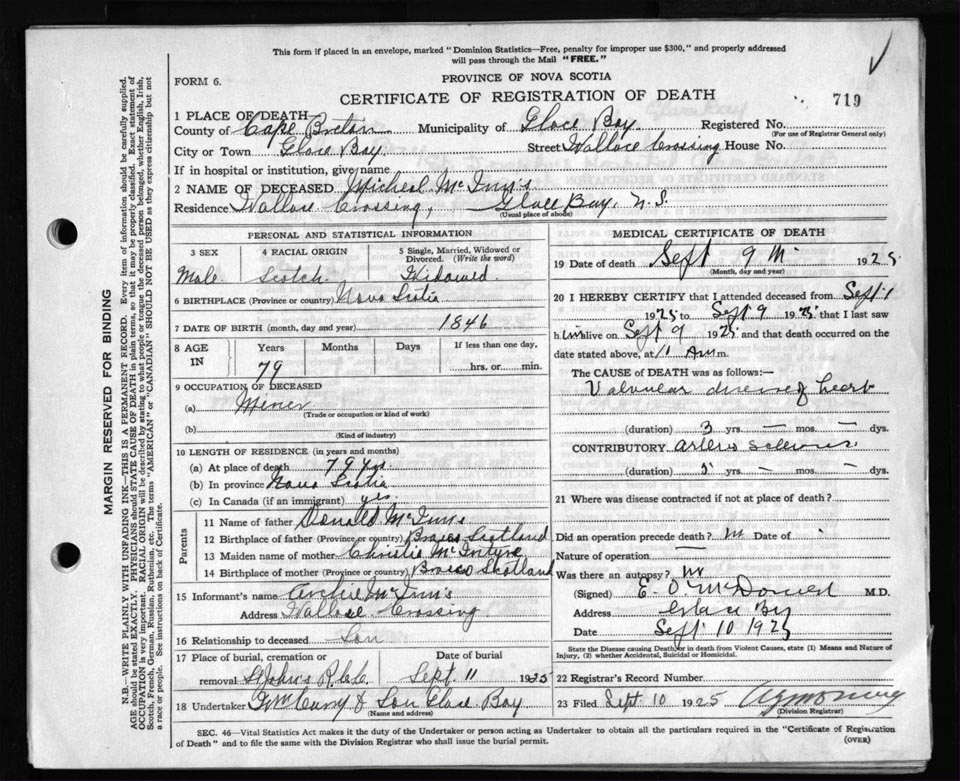 This form if placed in an envelope, marked "Dominion Statistics—Free, penalty for improper use $300," and properly addressed
will pass through the Mail "FREE."
FORM 6.
PROVINCE OF NOVA SCOTIA
CERTIFICATE OF REGISTRATION OF DEATH
719
1 PLACE OF DEATH
County of Cape Breton Municipality of Glace Bay Registered No.
(For use of Registrar General only)
City or Town Glace Bay Street Wallace Crossing House No.
If in hospital or institution, give name
2 NAME OF DECEASED Micheal McInnis
Residence Wallace Crossing, Glace Bay, N.S.
(Usual place of abode)
PERSONAL AND STATISTICAL INFORMATION
3 SEX 4 RACIAL ORIGIN 5 Single, Married, Widowed or Divorced. (Write the word)
Male Scotch Widowed
6 BIRTHPLACE (Province or country) Nova Scotia
7 DATE OF BIRTH (month, day and year) 1846
8 AGE IN Years Months Days If less than one day,
79 hrs. or min.
9 OCCUPATION OF DECEASED
(a) Miner
(Trade or occupation or kind of work)
(b)
(Kind of industry)
10 LENGTH OF RESIDENCE (in years and months)
(a) At place of death 79 yrs
(b) In province Nova Scotia
(c) In Canada (if an immigrant) yes
Parents
11 Name of father Donald McInnis
12 Birthplace of father (Province or country) Scotland
13 Maiden name of mother Christie McIntyre
14 Birthplace of mother (Province or country) Scotland
15 Informant's name Archie McInnis
Address Wallace Crossing
16 Relationship to deceased Son
17 Place of burial, cremation or Date of burial
removal St Johns Sept. 11 1925
18 Undertaker & Son Glace Bay
(Name and address)
MEDICAL CERTIFICATE OF DEATH
19 Date of death Sept 9 1925
(Month, day and year)
20 I HEREBY CERTIFY that I attended deceased from Sept 1
1925 to Sept 9 1925 that I last saw
h im alive on Sept 9 1925 and that death occurred on the
date stated above, at 11 A m.
The CAUSE of DEATH was as follows:—
Valvular disease of heart
(duration) 3 yrs. — mos. — dys.
CONTRIBUTORY Arterio Sclerosis
(duration) yrs. — mos. — dys.
21 Where was disease contracted if not at place of death?
Did an operation precede death? no Date of
Nature of operation —
Was there an autopsy? no
(Signed) E. O. McDonald M.D.
Address Glace Bay
Date Sept 10 1925
State the Disease causing Death, or in death from Violent Causes, state (1) Means and Nature of
Injury, (2) whether Accidental, Suicidal or Homicidal.
22 Registrar's Record Number
23 Filed Sept 10 1925
(Division Registrar)
SEC. 46—Vital Statistics Act makes it the duty of the Undertaker or person acting as Undertaker to obtain all the particulars required in the "Certificate of Registration
of Death" and to file the same with the Division Registrar who shall issue the burial permit.
(OVER)
MARGIN RESERVED FOR BINDING
N.B.—WRITE PLAINLY WITH UNFADING INK—THIS IS A PERMANENT RECORD. Every item of information should be carefully supplied.
AGE should be stated EXACTLY. PHYSICIANS should STATE CAUSE OF DEATH in plain terms, so that it may be properly classified. Exact statement of
OCCUPATION is very important. RACIAL ORIGIN will be described by stating to what people or tongue the deceased person belonged, whether English, Irish,
Scotch, French, German, Russian, Ruthenian, etc. The terms "AMERICAN" or "CANADIAN" SHOULD NOT BE USED as they express citizenship but not
a race or people. See instructions on back of Certificate.